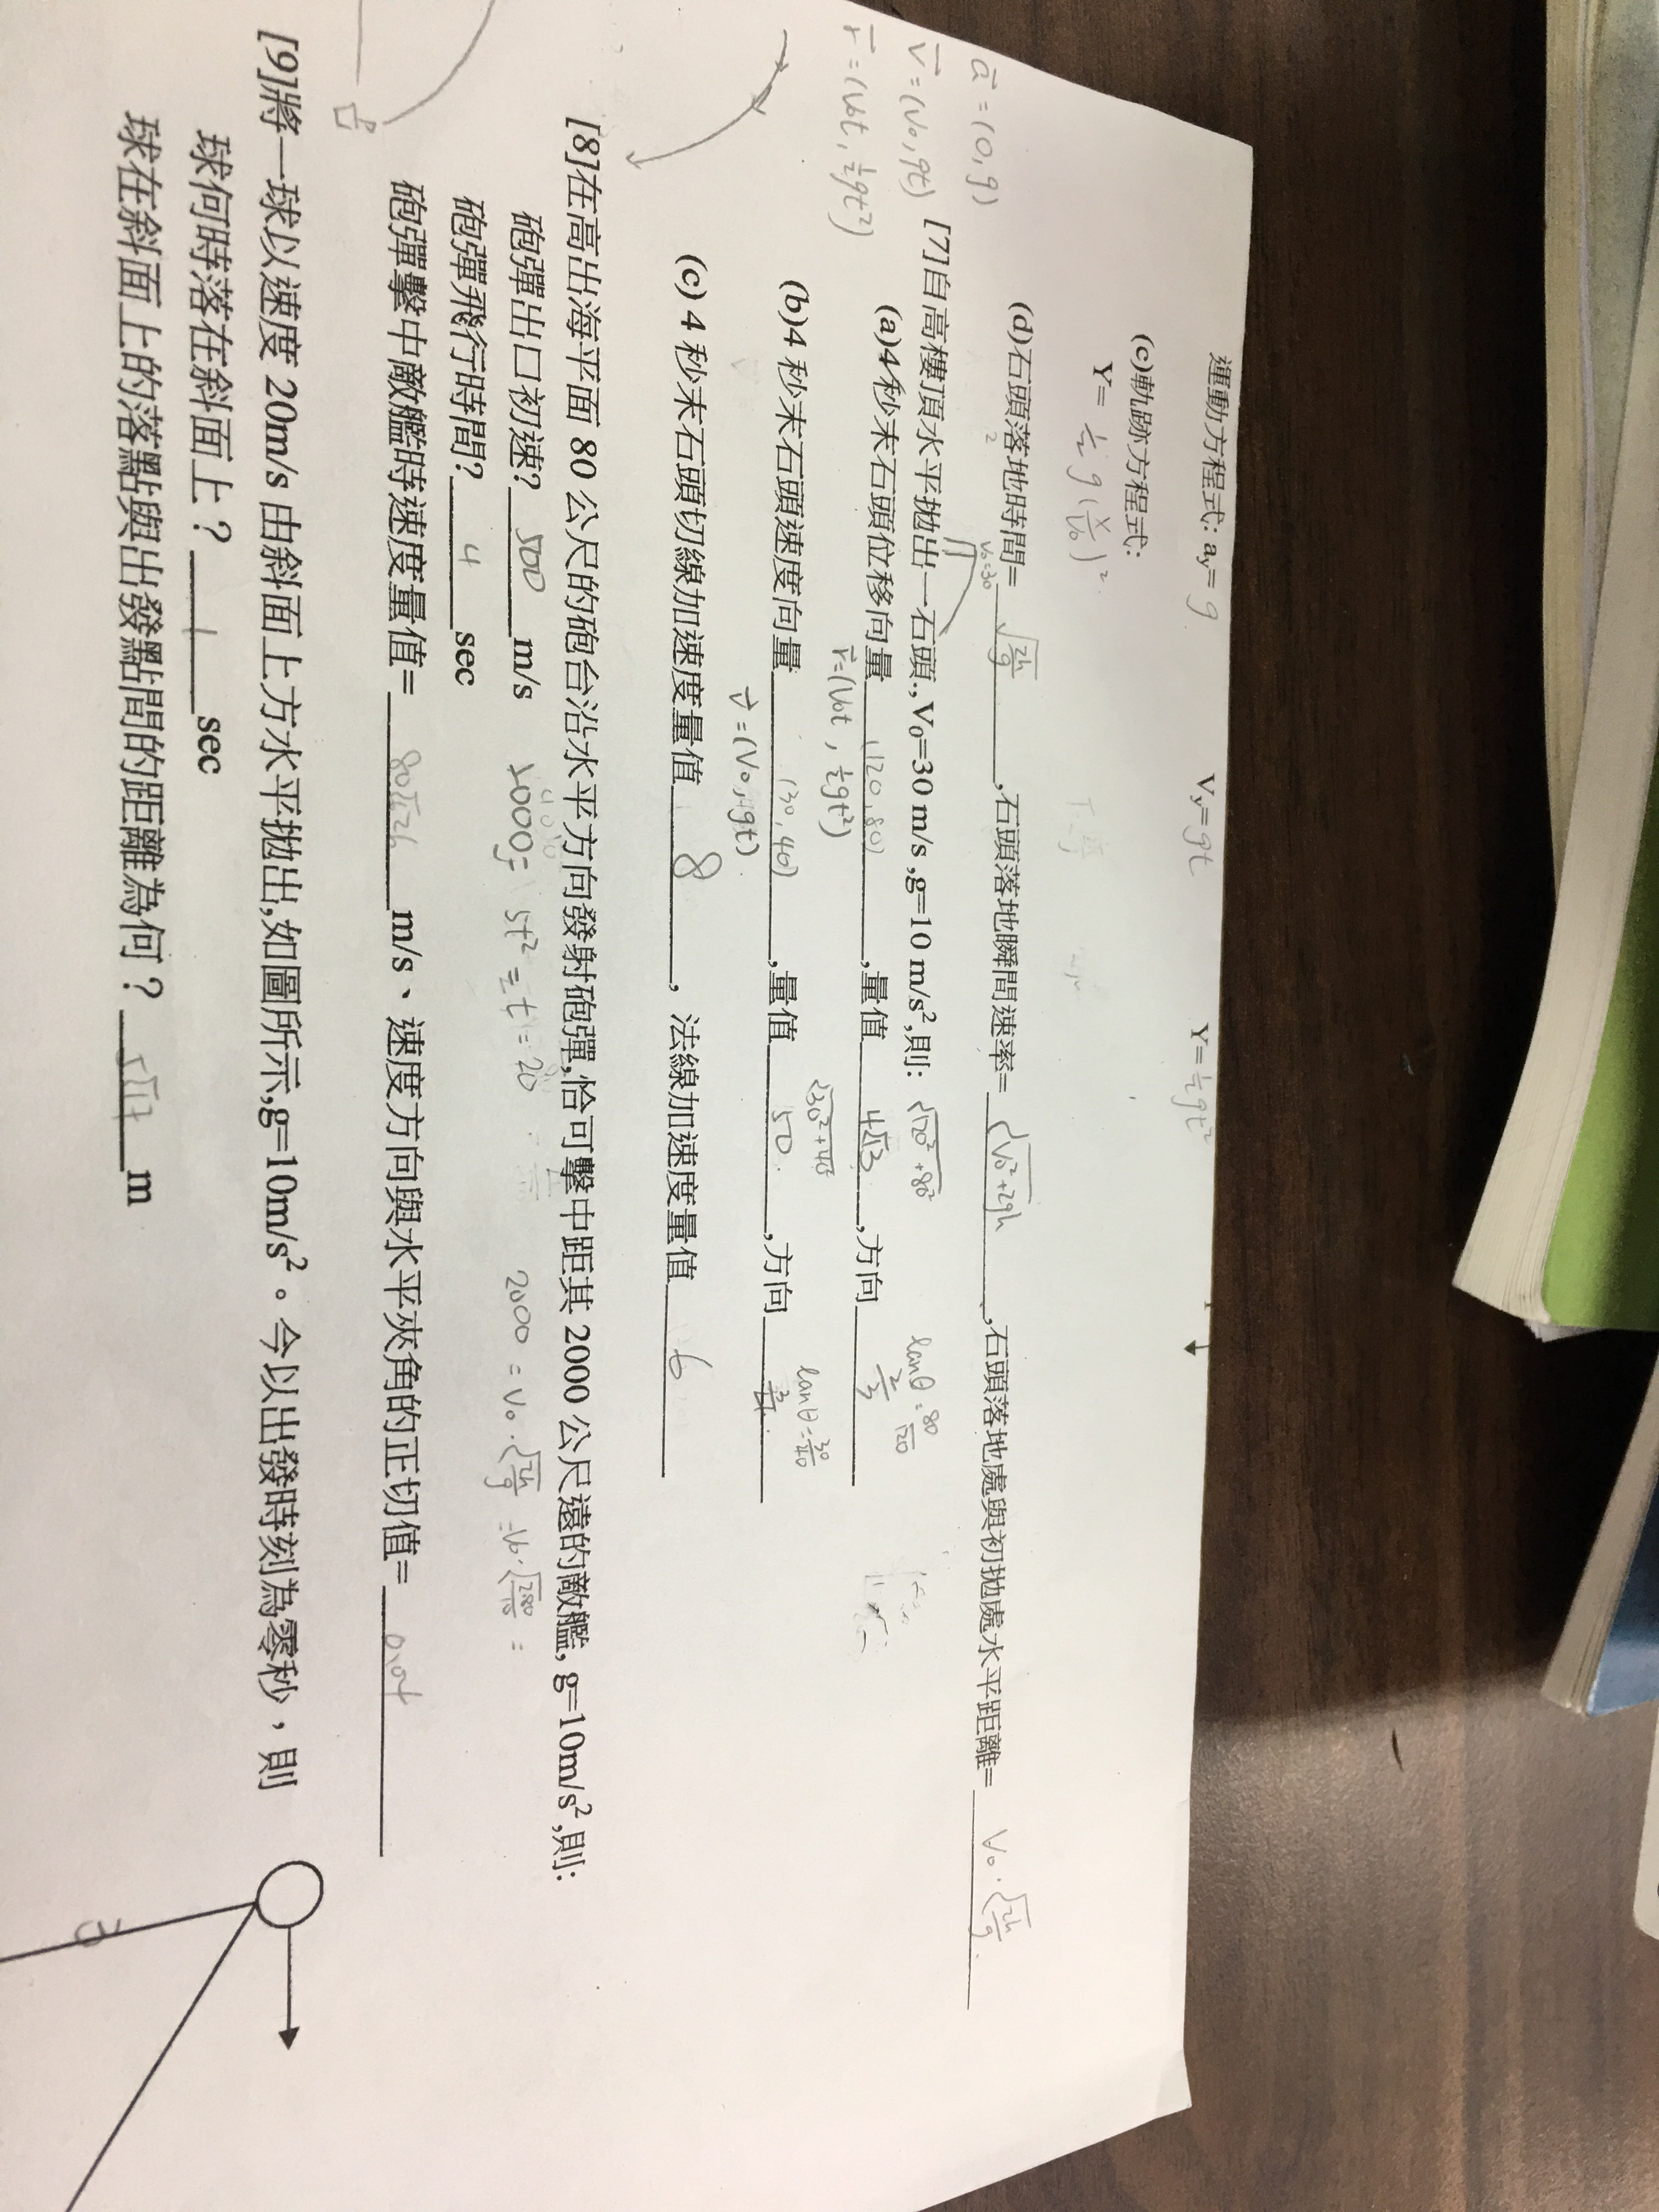 運動方程式: ay= g Vy= gt Y= ½gt²
(c)軌跡方程式:
Y= ½ g (x/V₀)²
(d)石頭落地時間= √(2h/g) ,石頭落地瞬間速率= √(V₀²+2gh) ,石頭落地處與初拋處水平距離= V₀·√(2h/g)
a⃗ = (0, g)
v⃗ = (V₀, gt)
r⃗ = (V₀t, ½gt²)
V₀=30
[7]自高樓頂水平拋出一石頭., V₀=30 m/s ,g=10 m/s²,則: √(120²+80²) tanθ = 80/120
(a)4秒末石頭位移向量 (120, 80) ,量值 ,方向 2/3
r⃗=(V₀t, ½gt²) √(30²+40²) tanθ = 30/40
(b)4 秒末石頭速度向量 (30, 40) ,量值 50 ,方向
v⃗ = (V₀, gt)
(c) 4 秒末石頭切線加速度量值 8 , 法線加速度量值 6
[8]在高出海平面 80 公尺的砲台沿水平方向發射砲彈,恰可擊中距其 2000 公尺遠的敵艦, g=10m/s²,則:
砲彈出口初速? 500 m/s 5t² = t = 20 2000 = V₀·√(2h/g) = V₀·√(2·80/10) =
砲彈飛行時間? 4 sec
砲彈擊中敵艦時速度量值= m/s、速度方向與水平夾角的正切值=
[9]將一球以速度 20m/s 由斜面上方水平拋出,如圖所示,g=10m/s²。今以出發時刻為零秒，則
球何時落在斜面上？ 1 sec
球在斜面上的落點與出發點間的距離為何？ m